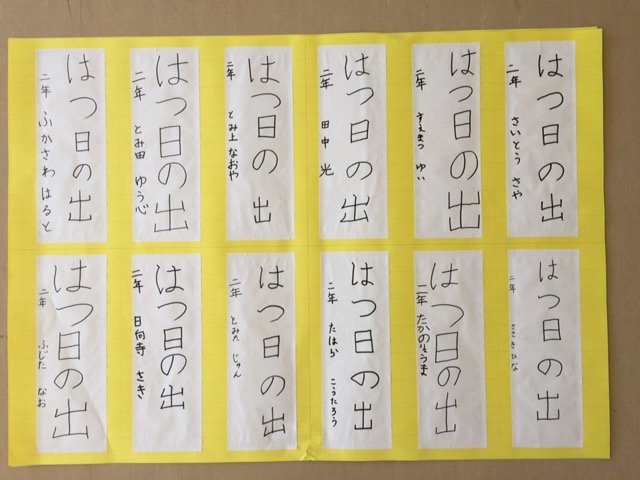 はつ日の出
二年 さいとう さや
はつ日の出
二年 すえまつ ゆい
はつ日の出
二年 田中 光
はつ日の出
二年 とみ上 なおや
はつ日の出
二年 とみ田 ゆう心
はつ日の出
二年 ふかさわ はると
はつ日の出
二年 ささき ひな
はつ日の出
二年 たかの りょうま
はつ日の出
二年 たはら こうたろう
はつ日の出
二年 とみた じゅん
はつ日の出
二年 日向寺 さき
はつ日の出
二年 ふじた なお